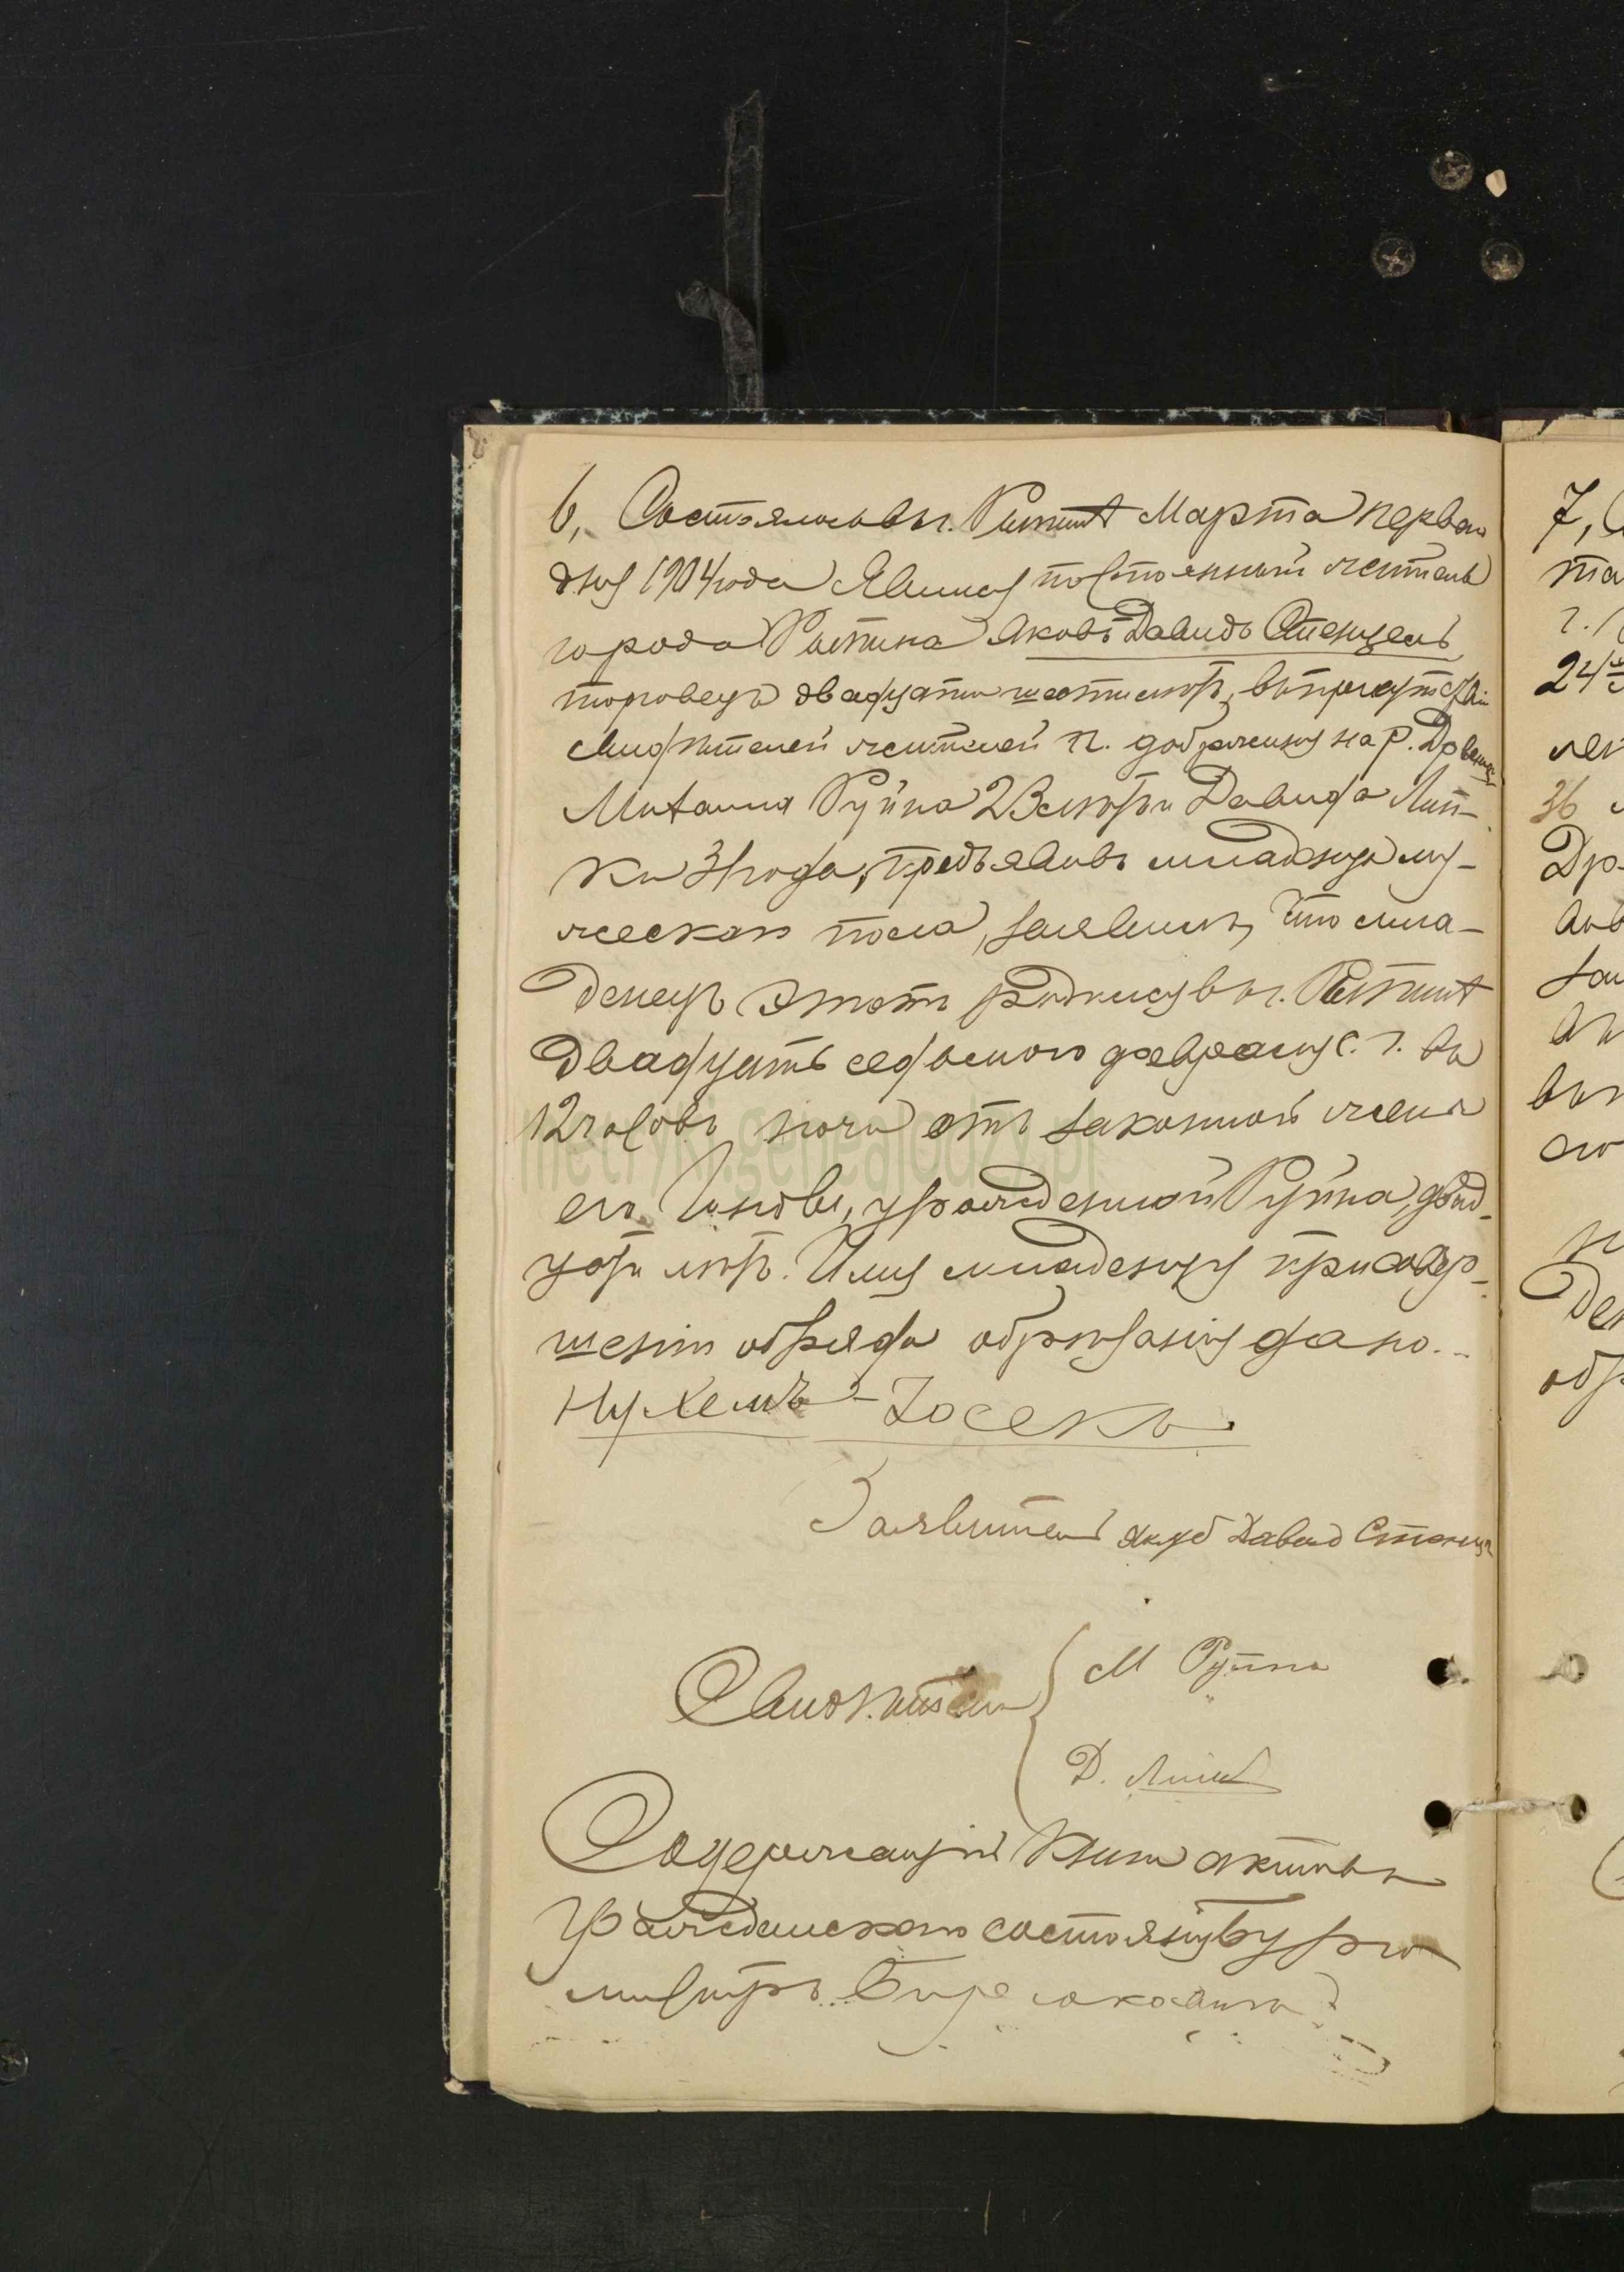 6, Состоялось въ г. Рыпинѣ Марта перваго
дня 1904 года Явился постоянный житель
города Рыпина Яковъ Давидъ Стенцель
торговецъ двадцати шести лѣтъ, въ присутствіи
свидѣтелей жителей п. Добржинь на р. Дрвенцѣ
Рупна 23 лѣтъ и Давида Лип-
ки 31 года, предъявивъ младенца му-
жескаго пола, заявилъ, что мла-
денецъ этотъ родился въ г. Рыпинѣ
двадцать седьмого февраля с. г. въ
12 часовъ ночи отъ законной жены
его урожденной Рупна, двад-
цати лѣтъ. Имя младенцу при совер-
шеніи обряда обрѣзанія дано..
Нухемъ-Іосекъ
Заявитель Якуб Давид Стенцел
Свидѣтели М Рупна
Д. Липка
Содержащій книги актовъ
гражданскаго состоянія Бурго-
мистръ
7,
та
г.
24
лет
36
Др
метryki.genealodzy.pl